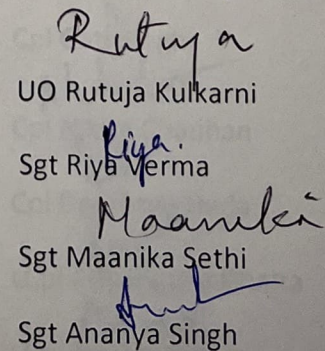 Rutuja
UO Rutuja Kulkarni
Riya.
Sgt Riya Verma
Maanika
Sgt Maanika Sethi
Sgt Ananya Singh